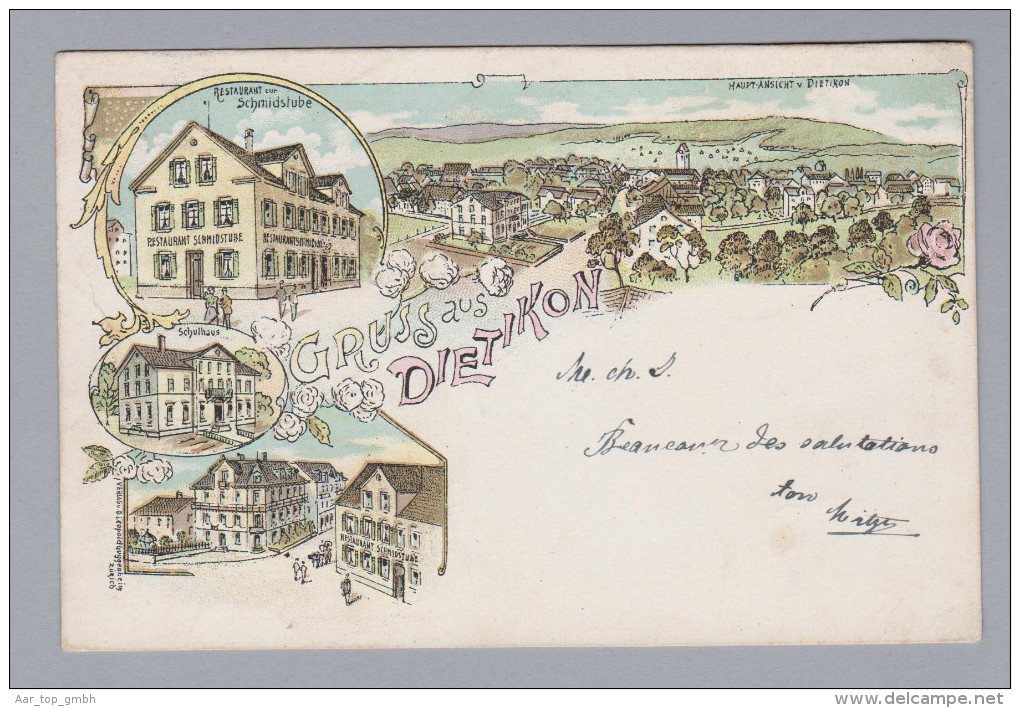 RESTAURANT zur
Schmidstube
HAUPT-ANSICHT v DIETIKON
RESTAURANT SCHMIDSTUBE
RESTAURANT SCHMIDSTUBE
Schulhaus
GRUSS aus
DIETIKON
Me. ch. J.
des salutations
ton
RESTAURANT SCHMIDSTUBE
VERLAG v. D. Leopold Guggenheim
ZÜRICH
Aar_top_gmbh
www.delcampe.net